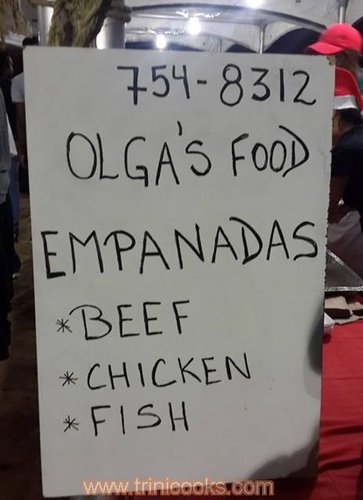 754-8312
OLGA'S FOOD
EMPANADAS
*BEEF
*CHICKEN
*FISH
www.trinicooks.com